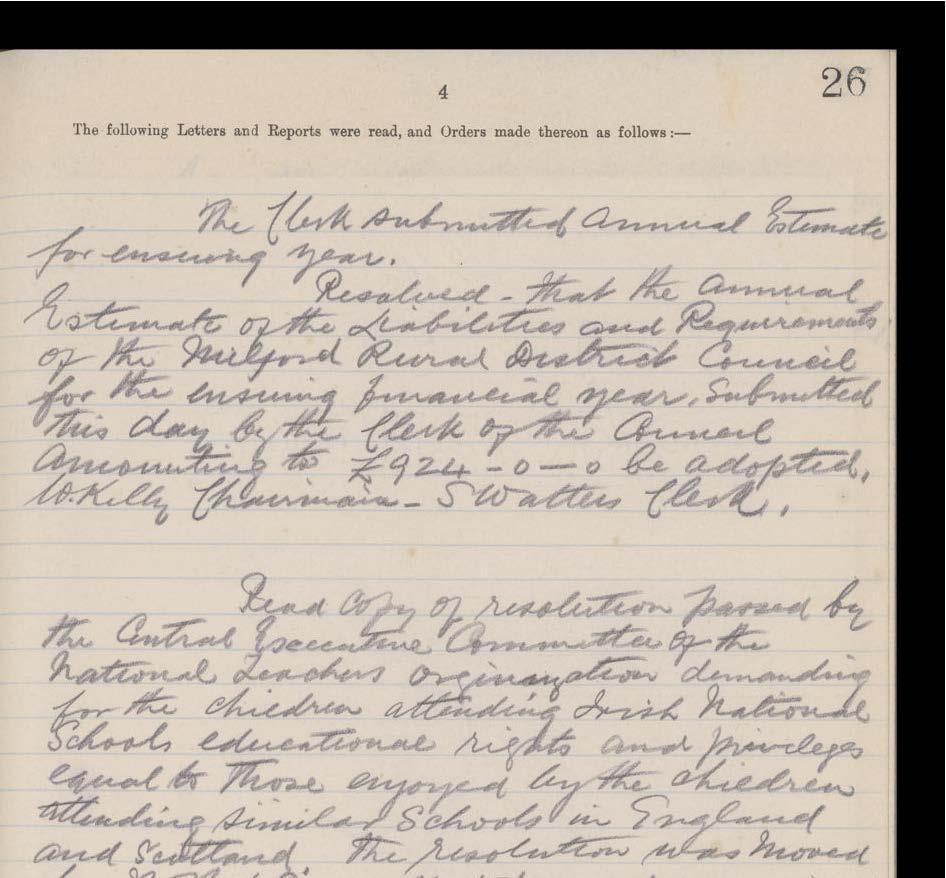 26
4
The following Letters and Reports were read, and Orders made thereon as follows :—
The Clerk submitted Annual Estimate
for ensuing year.
Resolved - that the Annual
Estimate of the Liabilities and Requirements
of the Milford Rural District Council
for the ensuing financial year, Submitted
this day by the Clerk of the Council
Amounting to £924 - 0 - 0 be adopted.
W. Kelly Chairman - S Watters Clerk.
Read Copy of resolution passed by
the Central Executive Committee of the
National Teachers demanding
for the children attending Irish National
Schools educational rights and privileges
equal to Those enjoyed by the children
attending similar Schools in England
and Scotland The resolution was Moved